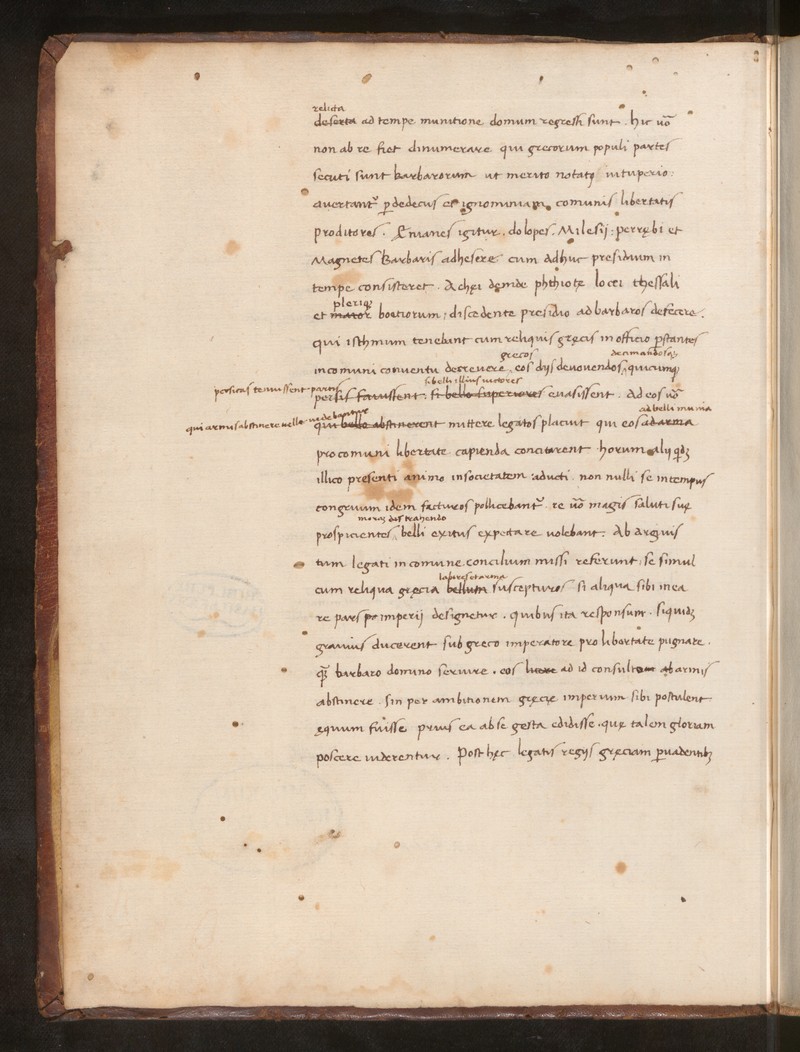 relicta
deserta ad tempe munitione domum regressi sunt. hic uõ
non ab re fiet dinumerare qui grecorum populi partes
secuti sunt barbarorum ut merito notati uituperio:
auertant² dedecus et ignominiam comunis libertatis
proditores. Enianes igitur. dolopes. Milesij: perrębi et
Magnetes Barbaris adhesere cum adhuc presidium in
tempe consisteret. Achęi deinde phthiotę locri thessali
pleriq;
et maior boetiorum; discedente presidio ad barbaros defecere.
qui isthmum tenebant cum reliquis gręcis in officio p̱stantes
grecos decimandosq;
in comuni conuentu decreuere, eos dijs deuouendos, quicumq;
si belli illius uictores
persicas tenuissent partis
persis fauissent: si bello superiores euasissent. Ad eos uõ
ad belli munia
qui armis abstinere uelle uidebantur
qui bello abstinerent mittere legatos placuit qui eos ad arma
pro comuni libertate capienda concitarent. horum alij qdȝ
illico presenti animo in societatem aducti. non nulli se in tempus
congruum idem facturos pollicebant². re uõ magis saluti suę
moras dās trahendo
prospicientes, belli exitus expectare uolebant: Ab argiuis
tum legati in comune concilium missi referunt; se simul
cum reliqua gręcia bellum suscepturos si aliqua sibi in ea
re pars imperij designetur. quibus ita responsum. siquidȝ
grauius ducerent sub greco imperatore pro libertate pugnare.
q̃ barbaro domino seruire. eos ad id consulto ab armis
abstinere. sin per ambitionem gręcię imperium sibi postulent
ęquum fuisse, prius ea ab se gesta edidisse. quę talem gloriam
poscere uiderentur. Post hęc legatis regijs gręciam peruadentibȝ